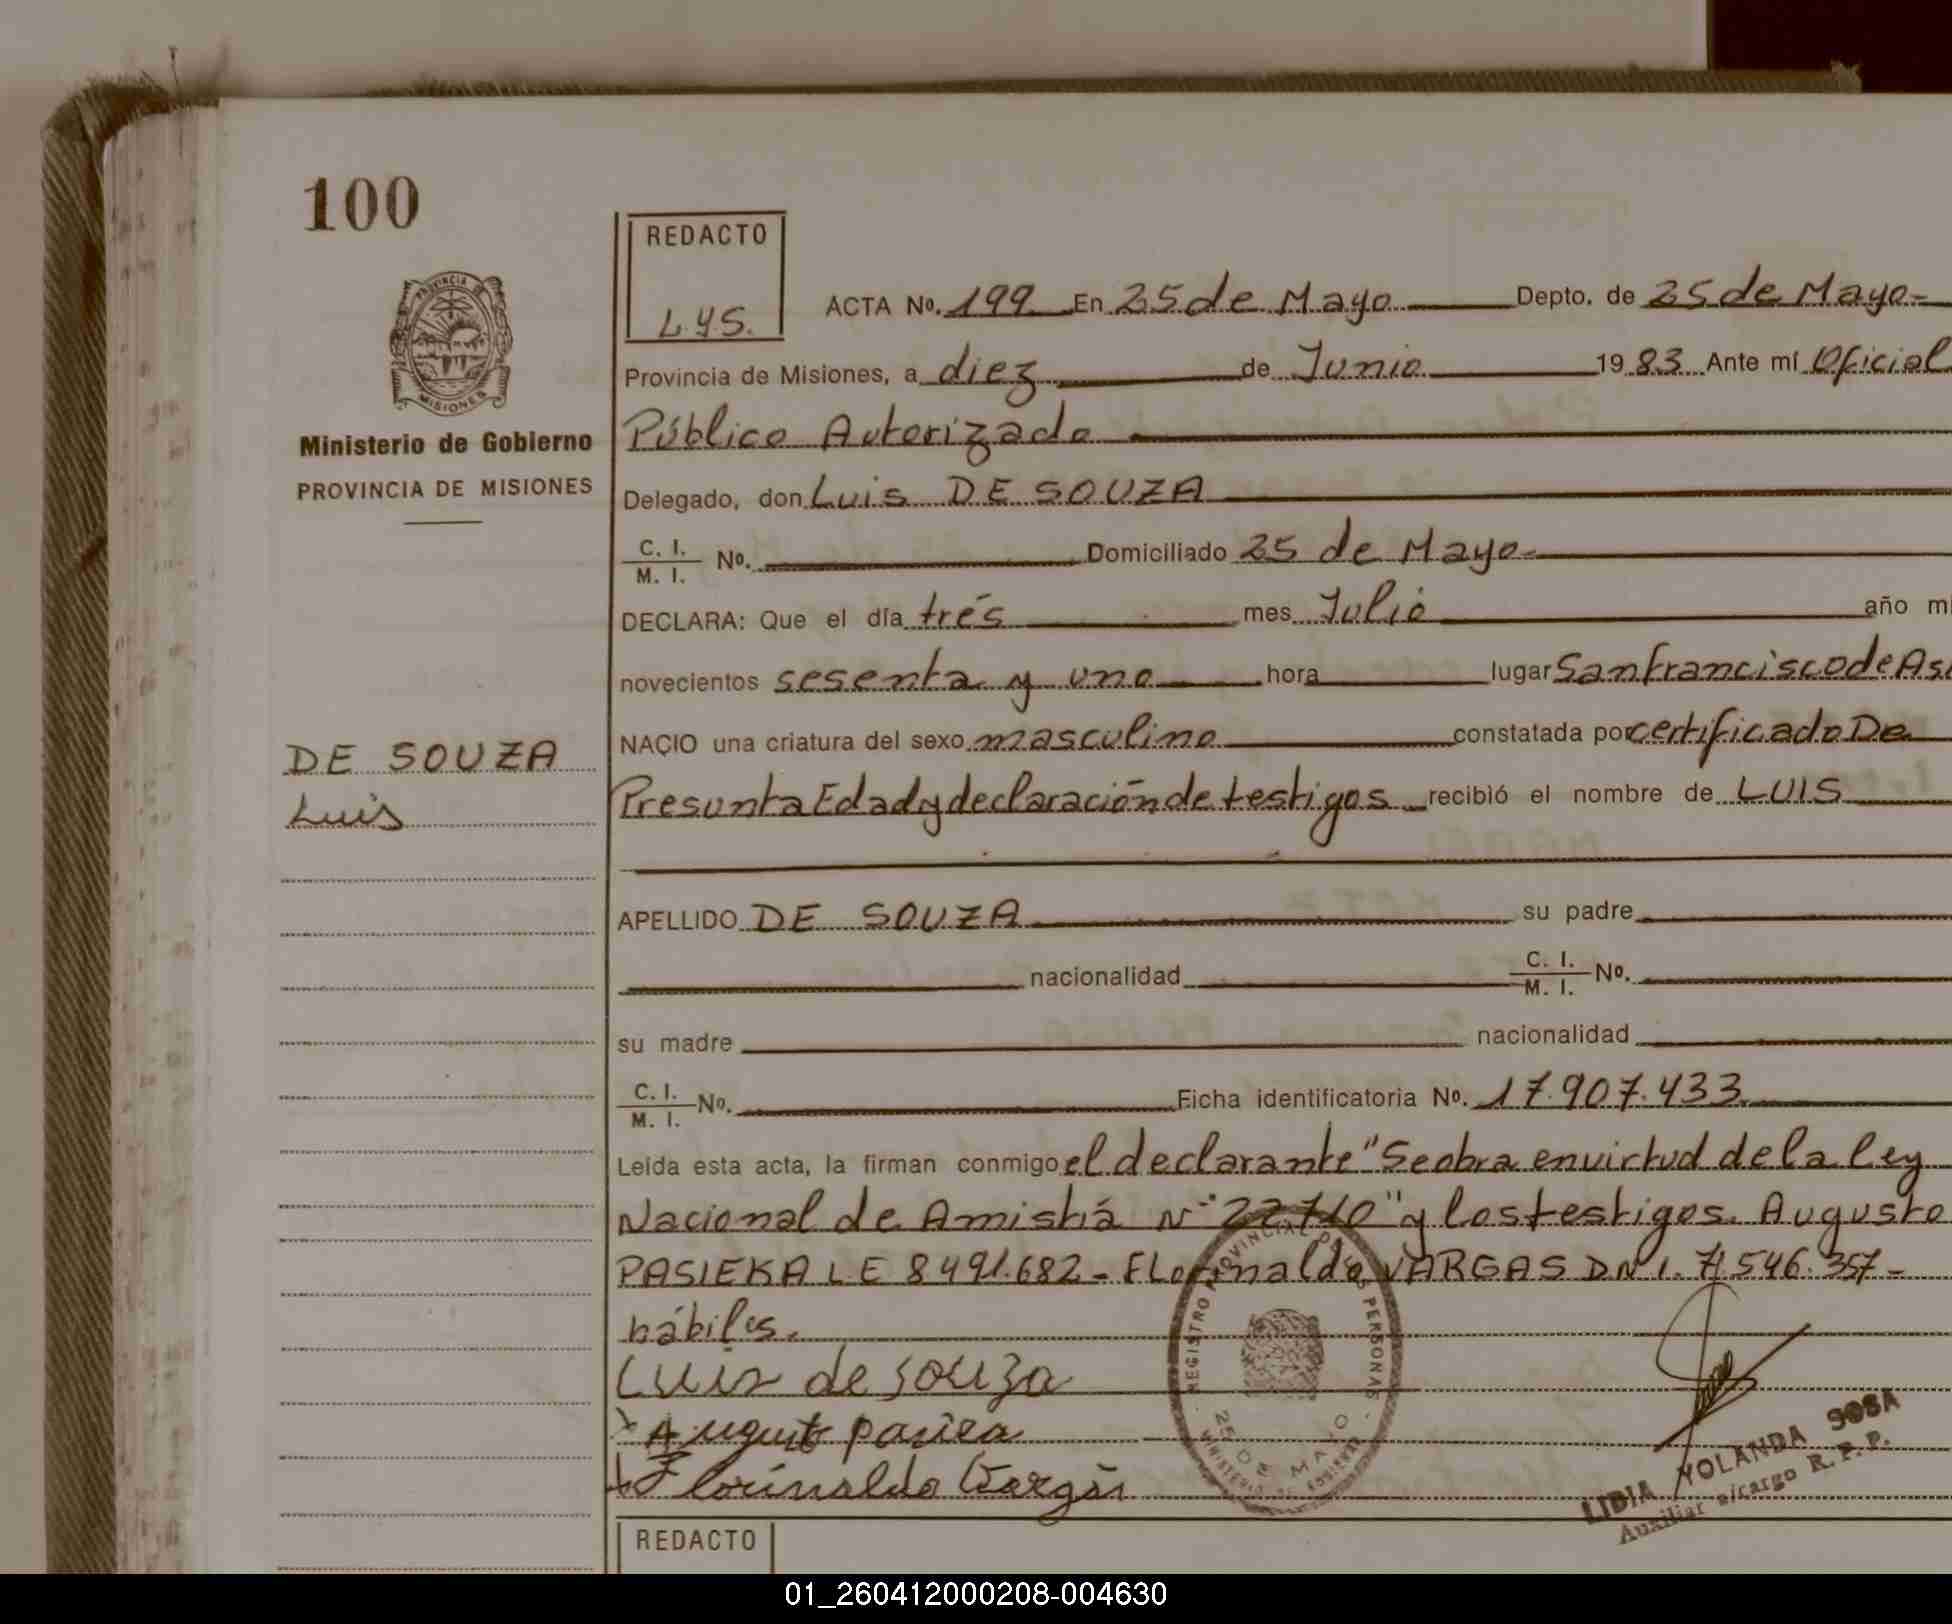 100
REDACTO
L.Y.S.
PROVINCIA DE
MISIONES
Ministerio de Gobierno
PROVINCIA DE MISIONES
DE SOUZA
Luis
ACTA Nº. 199 En 25 de Mayo Depto. de 25 de Mayo-
Provincia de Misiones, a diez de Junio 1983 Ante mí Oficial
Público Autorizado
Delegado, don Luis DE SOUZA
C. I.
M. I. Nº. Domiciliado 25 de Mayo-
DECLARA: Que el día trés mes Julio año mi
novecientos sesenta y uno hora lugar San Francisco de Asi
NACIO una criatura del sexo masculino constatada por certificado De
Presunta Edad y declaración de testigos recibió el nombre de LUIS
APELLIDO DE SOUZA su padre
nacionalidad C. I.
M. I. Nº.
su madre nacionalidad
C. I.
M. I. Nº. Ficha identificatoria Nº. 17.907.433
Leída esta acta, la firman conmigo el declarante "Se obra en virtud de la ley
Nacional de Amistiá Nº 22710" y los testigos. Augusto
PASIEKA LE 8491.682- FLorinaldo VARGAS DNI. 7.546.357-
hábiles.
Luis de Souza
Florinaldo Vargas
REGISTRO PROVINCIAL DE LAS PERSONAS
25 DE MAYO
MINISTERIO DE GOBIERNO
LIDIA YOLANDA SOSA
Auxiliar a/cargo R. P. P.
REDACTO
01_260412000208-004630